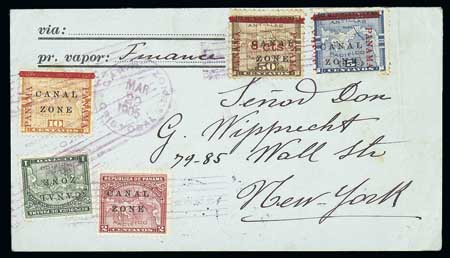 via:
pr. vapor: Finance
PANAMA
CANAL
ZONE
PANAMA
10
CENTAVOS
8 cts
ZONE
50
CENTAVOS
PANAMA
CANAL
ZONE
PANAMA
CENTAVOS
MAR
1905
CRISTOBAL
Señod Don
G. Wipprecht
79-85 Wall Str
New-York
CANAL
ZONE
1
REPUBLICA DE PANAMA
CANAL
ZONE
2 CENTAVOS 2